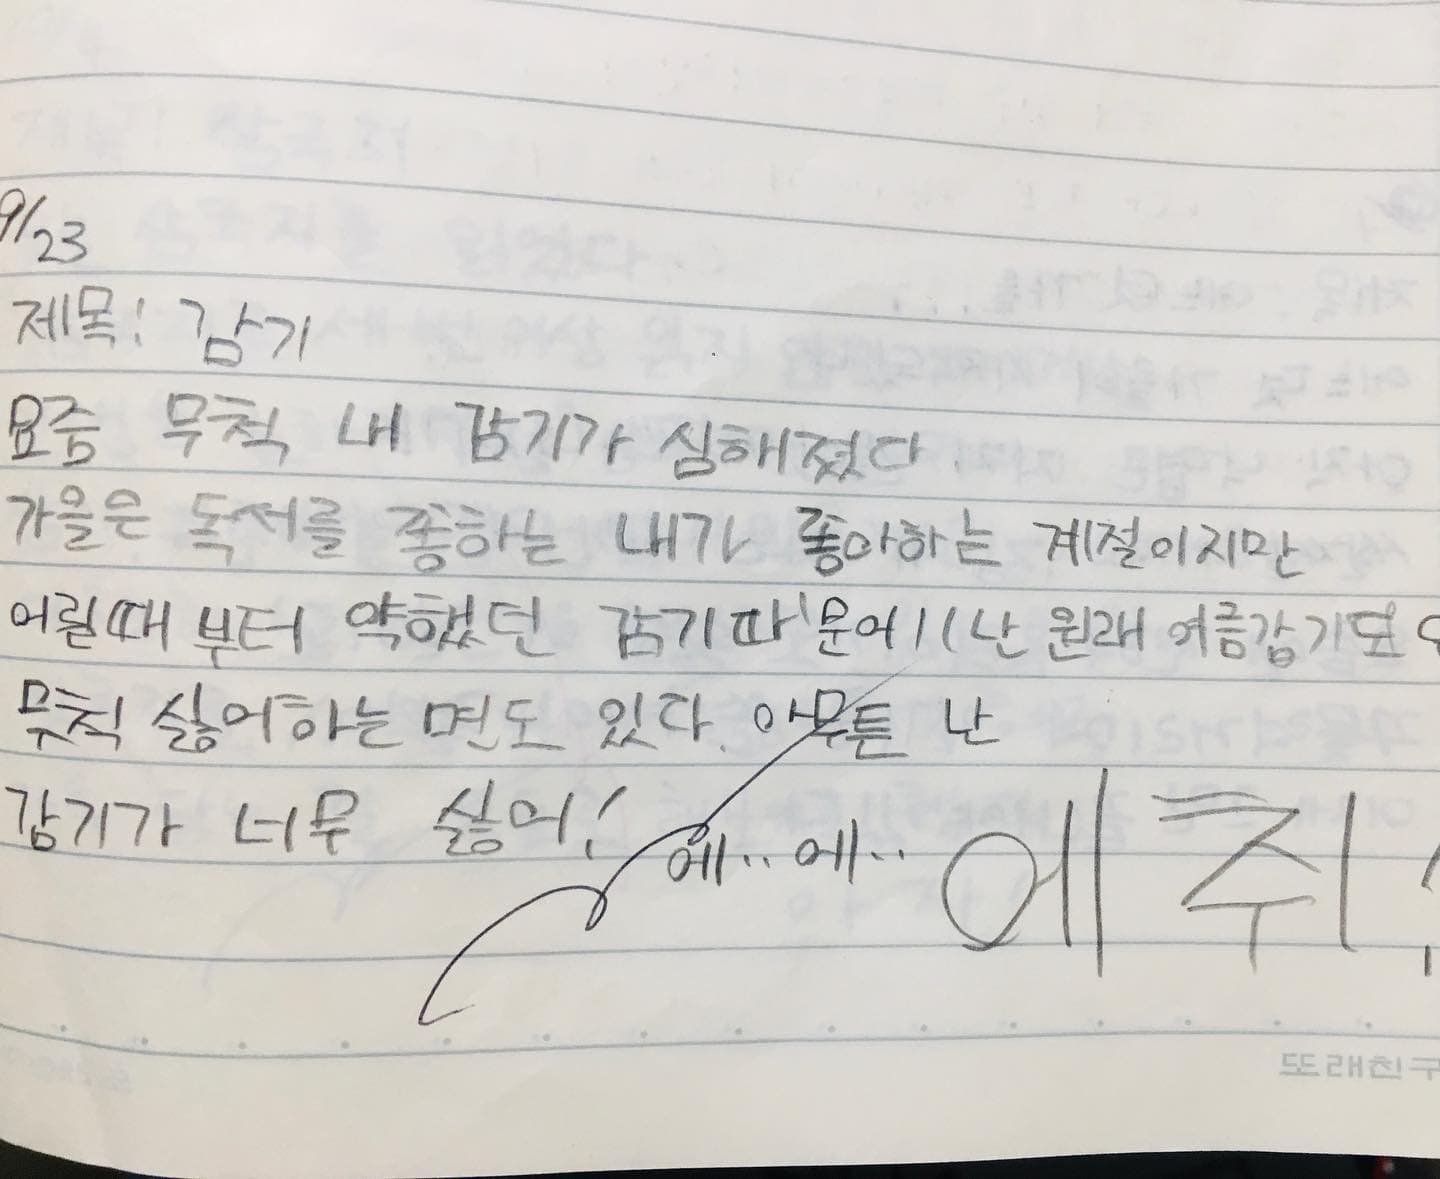 9/23
제목! 감기
요즘 무척 내 감기가 심해졌다.
가을은 독서를 종하는 내가 좋아하는 계절이지만
어릴때 부터 약했던 감기따문에 (난 원래 여름감기도
무척 싫어하는 면도 있다. 아무튼 난
감기가 너무 싫어!
에‥에‥ 에취!
또래친구